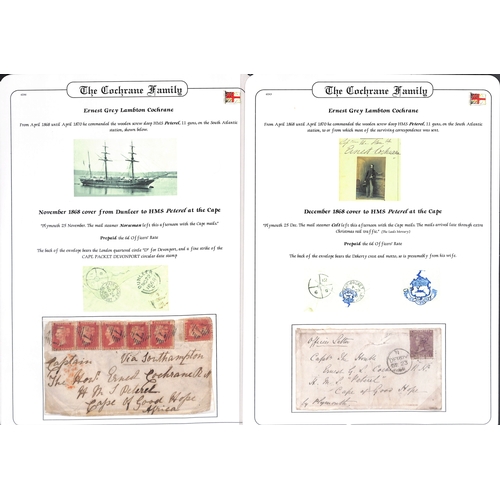 The Cochrane Family
Ernest Grey Lambton Cochrane
From April 1868 until April 1870 he commanded the wooden screw sloop HMS Peterel, 11 guns, on the South Atlantic
station, shown below.
November 1868 cover from Dunleer to HMS Peterel at the Cape
"Plymouth 25 November. The mail steamer Norseman left this afternoon with the Cape mails."
Prepaid the 6d Officers' Rate
The back of the envelope bears the London quartered circle "D" for Devonport, and a fine strike of the
CAPE PACKET DEVONPORT circular date stamp
Captain Via Southampton
The Honble Ernest Cochrane R.N
H M S Peterel
Cape of Good Hope
Africa
The Cochrane Family
Ernest Grey Lambton Cochrane
From April 1868 until April 1870 he commanded the wooden screw sloop HMS Peterel, 11 guns, on the South Atlantic
station, to or from which most of the surviving correspondence was sent.
Ernest Cochrane
December 1868 cover to HMS Peterel at the Cape
"Plymouth 25 Dec. The mail steamer Celt left this afternoon with the Cape mails. The mails arrived late through extra
Christmas rail traffic."
Prepaid the 6d Officers' Rate
The back of the envelope bears the Doherty crest and motto, as is presumably from his wife.
Officers Letter
H. M. S. Peterel
Cape of Good Hope
by Plymouth